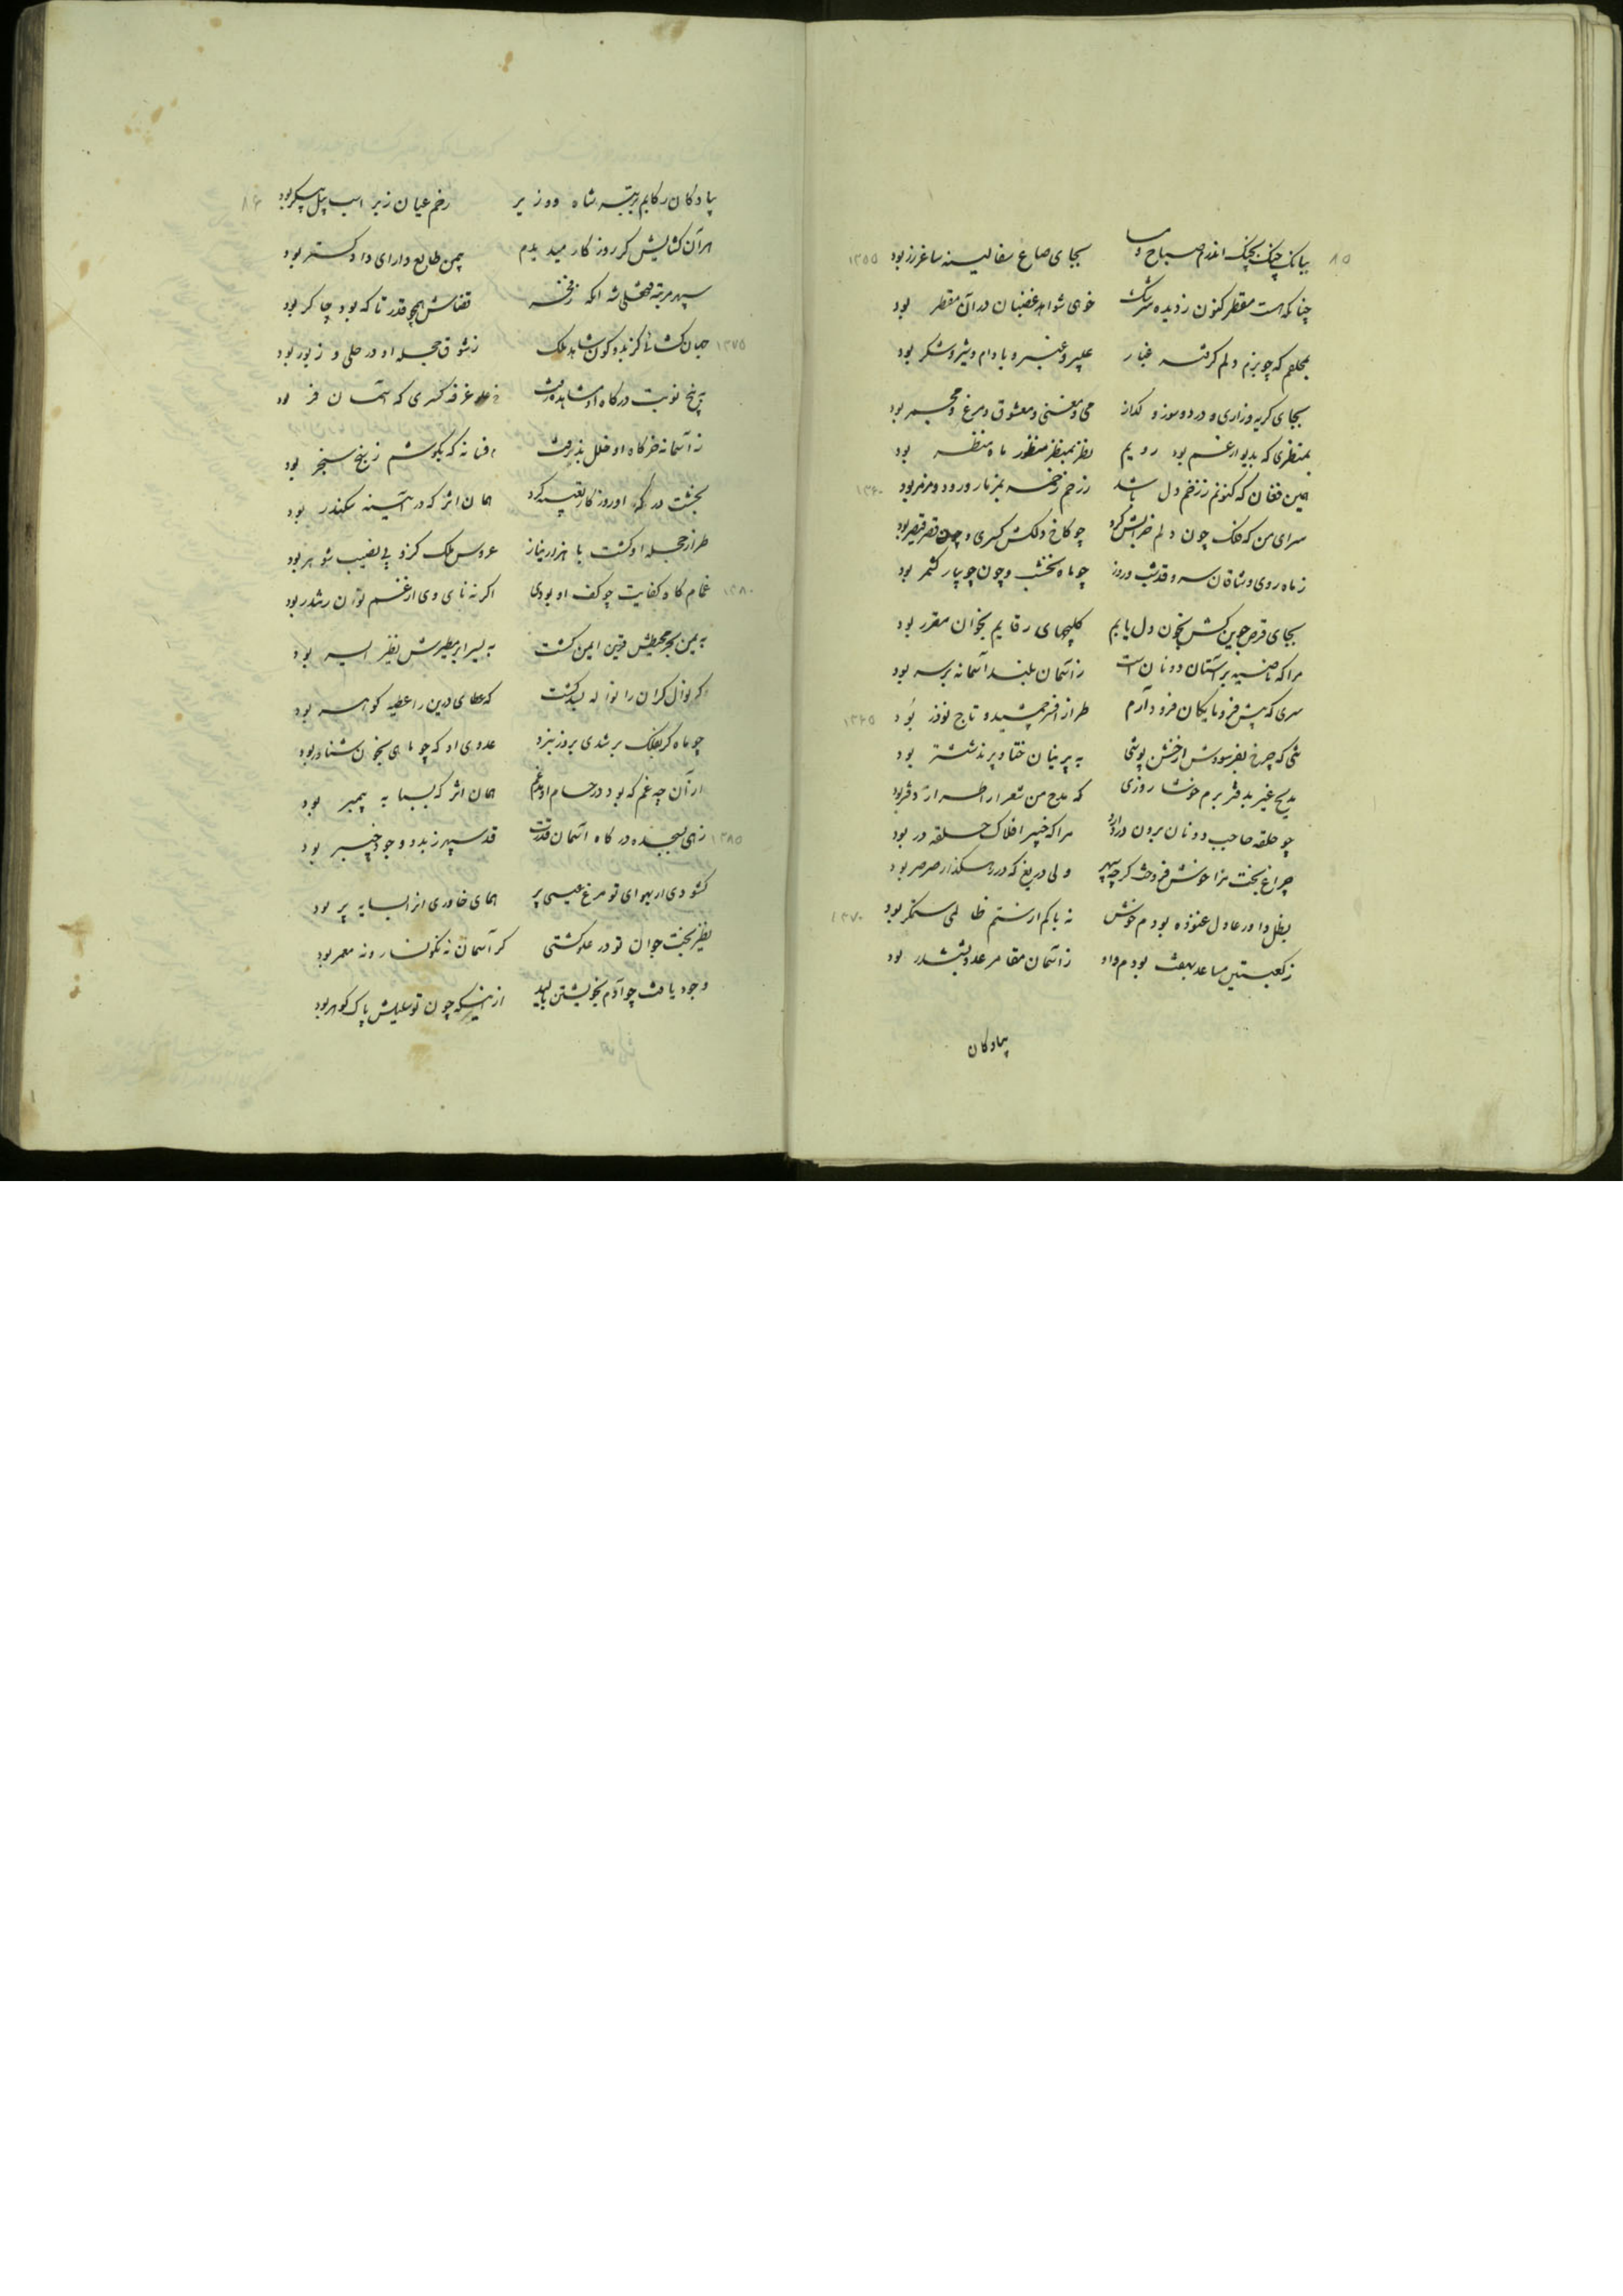 ۸۵
ببانک چنک بچنک اندرم صباح و مسا بجای صاع سفالینه ساغر زر بود ۱۳۵۵
چنانکه است مقطر کنون ز دیده سرشک خوی شواهد غضبان در آن مقطر بود
بمجلسم که چو بزم دلم گرفته غبار عبیر و عنبر و بادام و شیر و شکر بود
بجای کریه و زاری و درد و سوز و کداز می و مغنی و معشوق و مرغ و مجمر بود
بمنظری که بدیوار غم بود رویم نظر بمنظر منظور ماه منظر بود
همین فغان که کنونم ز زخم دل باشد ز زخم زخمه بمزمار و رود و مزمر بود ۱۳۶۰
سرای من که فلک چون دلم خرابش کرد چو کاخ دلکش کسری و چون قصر قیصر بود
ز ماه روی وشاقان سرو قد شب و روز چو ماه نخشب و چون جویبار کشمر بود
بجای قرص جوین کش بخون دل یابم کلیچهای رقایم بخوان مقرر بود
مرا که ناصیه بر آستان دونان است ز آسمان بلند آستانه برسر بود
سری که پیش فرومایکان فرود آرم طراز افسر جمشید و تاج نوذر بود ۱۳۶۵
تنی که چرخ بفرسودش از خشن پوشی به پرنیان ختا و پرند ششتر بود
مدیح غیر بدفتر برم خوشا روزی که مدح من شعرا را طراز دفتر بود
چو حلقه حاجب دونان برون در دارد مرا که خنبر افلاک حلقه در بود
چراغ بخت مرا خوش فروخت کرچه سپهر ولی دریغ که در رهکذار صرصر بود
بظل داور عادل غنوده بودم خوش نه باکم از ستم ظالمی ستمکر بود ۱۳۷۰
ز کعبتین مساعد بهفت بودم داو ز آسمان مقامر عدو بششدر بود
پیادکان
۸۶
پیادکان رکابم برتبه شاه و وزیر رخم عیان ز بر اسب پیل پیکر بود
هر آن کشایش کز روزکار میدیدم بیمن طالع دارای دادکستر بود
سپهر مرتبه فتحعلی شه آنکه ز نخست قضاش همچو قدر تا که بود چاکر بود
جهان کشائی کز بدو کون شاهد ملک ز شوق حجله او در حلی و زیور بود ۱۳۷۵
به پنج نوبت درکاه او مشابهه یافت غرفه کسری که آسمان فر بود
ز آستانه خرکاه او خلل پذیرفت فسانه که بکوشم ز پنج سنجر بود
بخشت درکه او روزکار تعبیه کرد همان اثر که در آئینه سکندر بود
طراز حجله او کشت با هزار نیاز عروس ملک کزو بی نصیب شوهر بود
غمام کاه کفایت چو کف او بودی اکر نه نای وی از غم توان رشدر بود ۱۳۸۰
به یمن بحر محیطش قرین ایمن کشت به یسر ابر مطیرش نظیر ایسر بود
کر نوال کران را نواله بیدکشت که عطای درین را عطیه کوهر بود
چو ماه کر بفلک برشدی بروز نبرد عدوی او که چو ماهی بخون شناور بود
از آن چه غم که بود در حسام او مدغم همان اثر که بسبابه پیمبر بود
زهی بسجده درکاه آسمان قدرت قد سپهر ز بدو وجود چنبر بود ۱۳۸۵
کشودی ار بهوای تو مرغ عیسی پر همای خاوری از السایه پر بود
نظیر بخت جوان تو در علو کشتی کر آسمان نه نکونسار و نه معمر بود
وجود یافت چو آدم بخویشتن بالید از اینکه چون تو سلیلش پاک کوهر بود